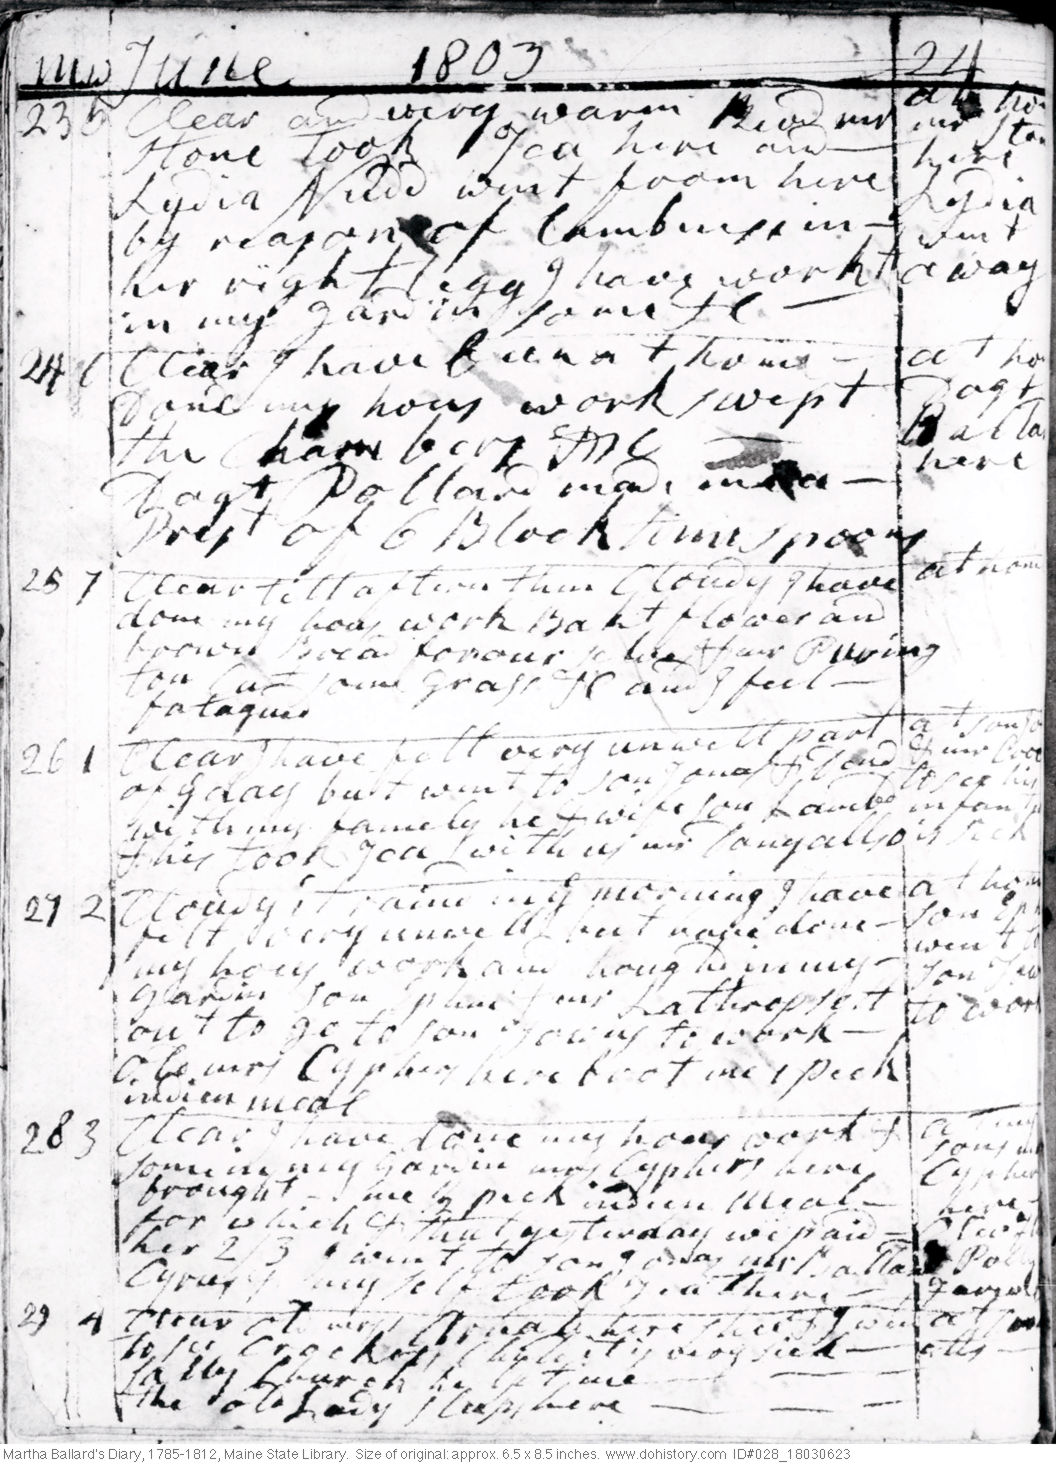 mo June 1803 24
23 5 Clear and very warm Revd mr
Stone took Tea here and
Lydia Nudd went from here
by reason of lambness in
her right legg I have workt
in my gardin some &c
at ho
mr Ston
here
Lydia
went
away
24 6 Clear I have been at home
Done my hous work swept
the Chambers &c
Dogt Pollard made me a
Prest of 6 Block time spoons
at ho
Dogt
Balla
here
25 7 Clear till aftern then Cloudy I have
done my hous work Bakt flower and
brown Bread for our selves & mr Puring
ton Cut some grass &c and I feel
fatagued
at hom
26 1 Clear I have felt very unwell part
of ye day but went to son Jonas &
with my famely he & wife son Lambd
& his took Tea with us mr allso
at son Jo
& mr Croc
to see his
infant
is sick
27 2 Cloudy it raind in ye morning I have
felt very unwell but have done
my hous work and houghd in my
gardin son Ephm & mr Lathrop set
out to go to son Town's to work
old mrs Cyphers here brot me 1 peck
indien meal
at hom
son Eph
went to
son Tow
to work
28 3 Clear I have done my hous work &
some in my gardin mrs Cyphers here
brought me ½ peck indien meal
for which & that yesterday we paid
her 2/3 I went to son Jonas mrs Ballard
Cyrus & my self took Tea there
at my
sons mrs
Cypher
here
Polly
Farwel
29 4 Clear old mrs here shee & I went
to see Crockers Child it is very sick
Sally Church helpt me
the old Lady sleeps here
at son
atts
Martha Ballard's Diary, 1785-1812, Maine State Library. Size of original: approx. 6.5 x 8.5 inches. www.dohistory.com ID#028_18030623